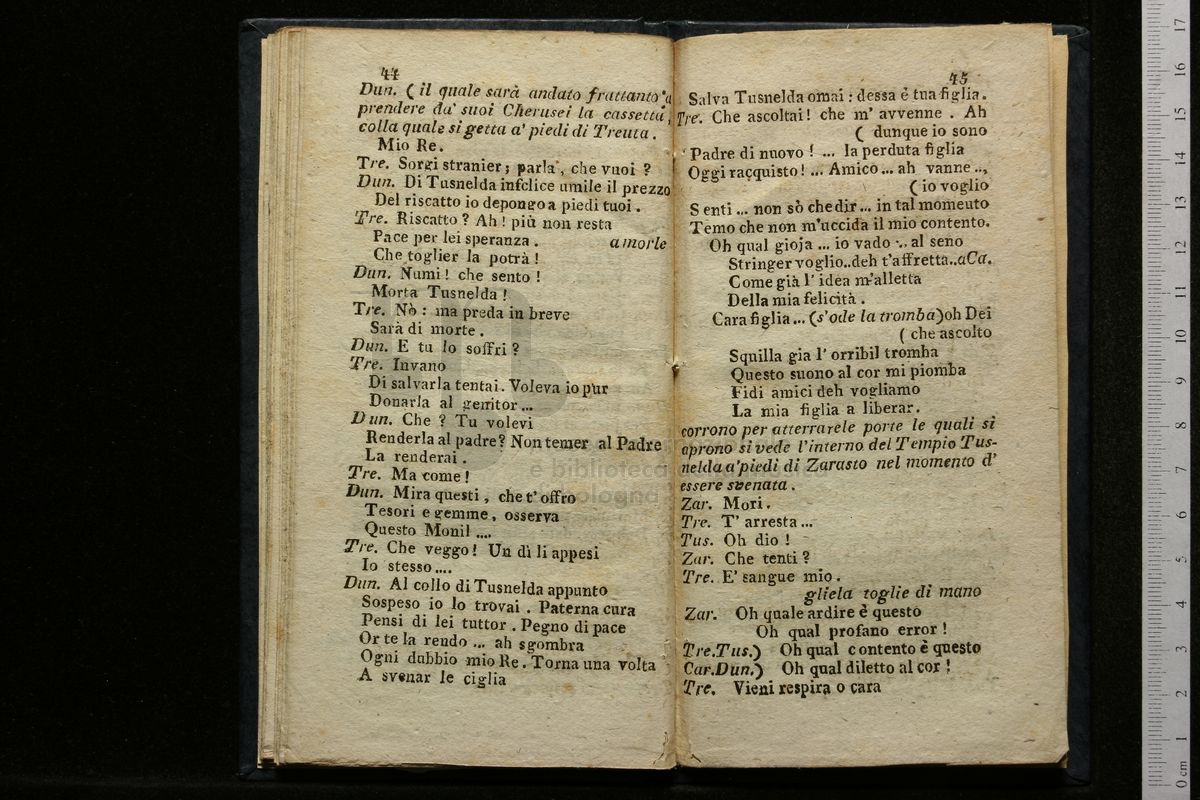 44
Dun. ( il quale sarà andato frattanto a
prendere da' suoi Cherusei la cassetta,
colla quale si getta a' piedi di Treuta.
Mio Re.
Tre. Sorgi stranier; parla, che vuoi ?
Dun. Di Tusnelda infelice umile il prezzo
Del riscatto io depongo a piedi tuoi.
Tre. Riscatto ? Ah ! più non resta
Pace per lei speranza . a morte
Che toglier la potrà !
Dun. Numi ! che sento !
Morta Tusnelda !
Tre. Nò : ma preda in breve
Sarà di morte .
Dun. E tu lo soffri ?
Tre. Invano
Di salvarla tentai. Voleva io pur
Donarla al genitor ...
Dun. Che ? Tu volevi
Renderla al padre? Non temer al Padre
La renderai .
Tre. Ma come !
Dun. Mira questi , che t' offro
Tesori e gemme, osserva
Questo Monil ....
Tre. Che veggo ! Un dì li appesi
Io stesso ....
Dun. Al collo di Tusnelda appunto
Sospeso io lo trovai . Paterna cura
Pensi di lei tuttor . Pegno di pace
Or te la rendo ... ah sgombra
Ogni dubbio mio Re . Torna una volta
A svenar le ciglia
45
Salva Tusnelda omai : dessa è tua figlia.
Tre. Che ascoltai! che m' avvenne . Ah
( dunque io sono
Padre di nuovo ! ... la perduta figlia
Oggi racquisto ! ... Amico ... ah vanne ..,
( io voglio
S enti ... non sò che dir ... in tal momeuto
Temo che non m'uccida il mio contento.
Oh qual gioja ... io vado ... al seno
Stringer voglio..deh t'affretta..aCa.
Come già l' idea m'alletta
Della mia felicità .
Cara figlia ... (s'ode la tromba)oh Dei
( che ascolto
Squilla gia l' orribil tromba
Questo suono al cor mi piomba
Fidi amici deh vogliamo
La mia figlia a liberar.
corrono per atterrarele porte le quali si
aprono si vede l'interno del Tempio Tus-
nelda a'piedi di Zarasto nel momento d'
essere svenata .
Zar. Mori.
Tre. T' arresta ...
Tus. Oh dio !
Zar. Che tenti ?
Tre. E' sangue mio .
gliela toglie di mano
Zar. Oh quale ardire è questo
Oh qual profano error !
Tre.Tus.) Oh qual c ontento è questo
Car.Dun.) Oh qual diletto al cor !
Tre. Vieni respira o cara
e biblioteca della musica
bologna
0 cm 1 2 3 4 5 6 7 8 9 10 11 12 13 14 15 16 17